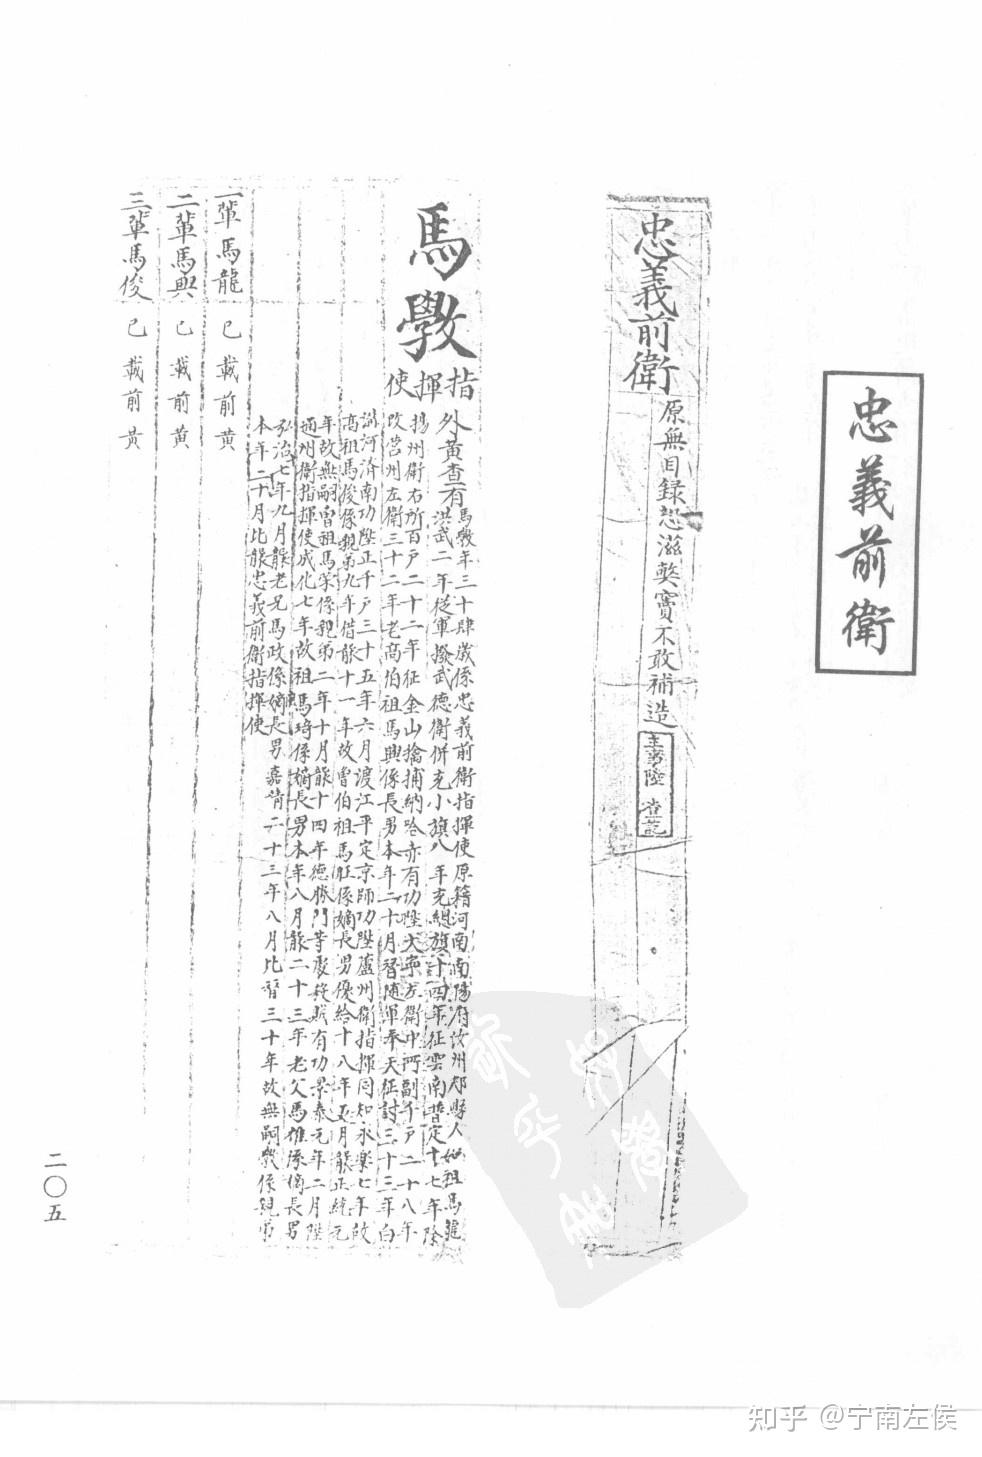 忠義前衛
忠義前衛
原無目録恐滋弊竇不敢補造
主事陸
查訖
馬斆
指揮使
外黃查有
馬斆年三十肆歲係忠義前衛指揮使原籍河南南陽府汝州郟縣人始祖馬龍
洪武二年從軍撥武德衛併充小旗八年充總旗十四年征雲南普定十七年除
揚州衛右所百戶二十二年征金山擒捕納哈赤有功陞大寧左衛中所副千戶二十八年
改營州左衛三十二年老高伯祖馬興係長男本年二十月替隨軍奉天征討三十三年白
溝河濟南功陞正千戶三十五年六月渡江平定京師功陞盧州衛指揮同知永樂七年故
高祖馬俊係親弟九年借職十一年故曾伯祖馬旺係嫡長男優給十八年五月職正統元
年故無嗣曾祖馬榮係親弟二年十月職十四年德勝門等處殺賊有功景泰元年二月陞
通州衛指揮使成化七年故祖馬琦係嫡長男本年八月職二十三年老父馬雄係嫡長男
弘治七年九月職老兄馬政係嫡長男嘉靖二十三年八月比替三十年故無嗣斆係親弟
本年二十月比職忠義前衛指揮使
一輩馬龍 已載前黃
二輩馬興 已載前黃
三輩馬俊 已載前黃
二〇五
知乎 @宁南左侯